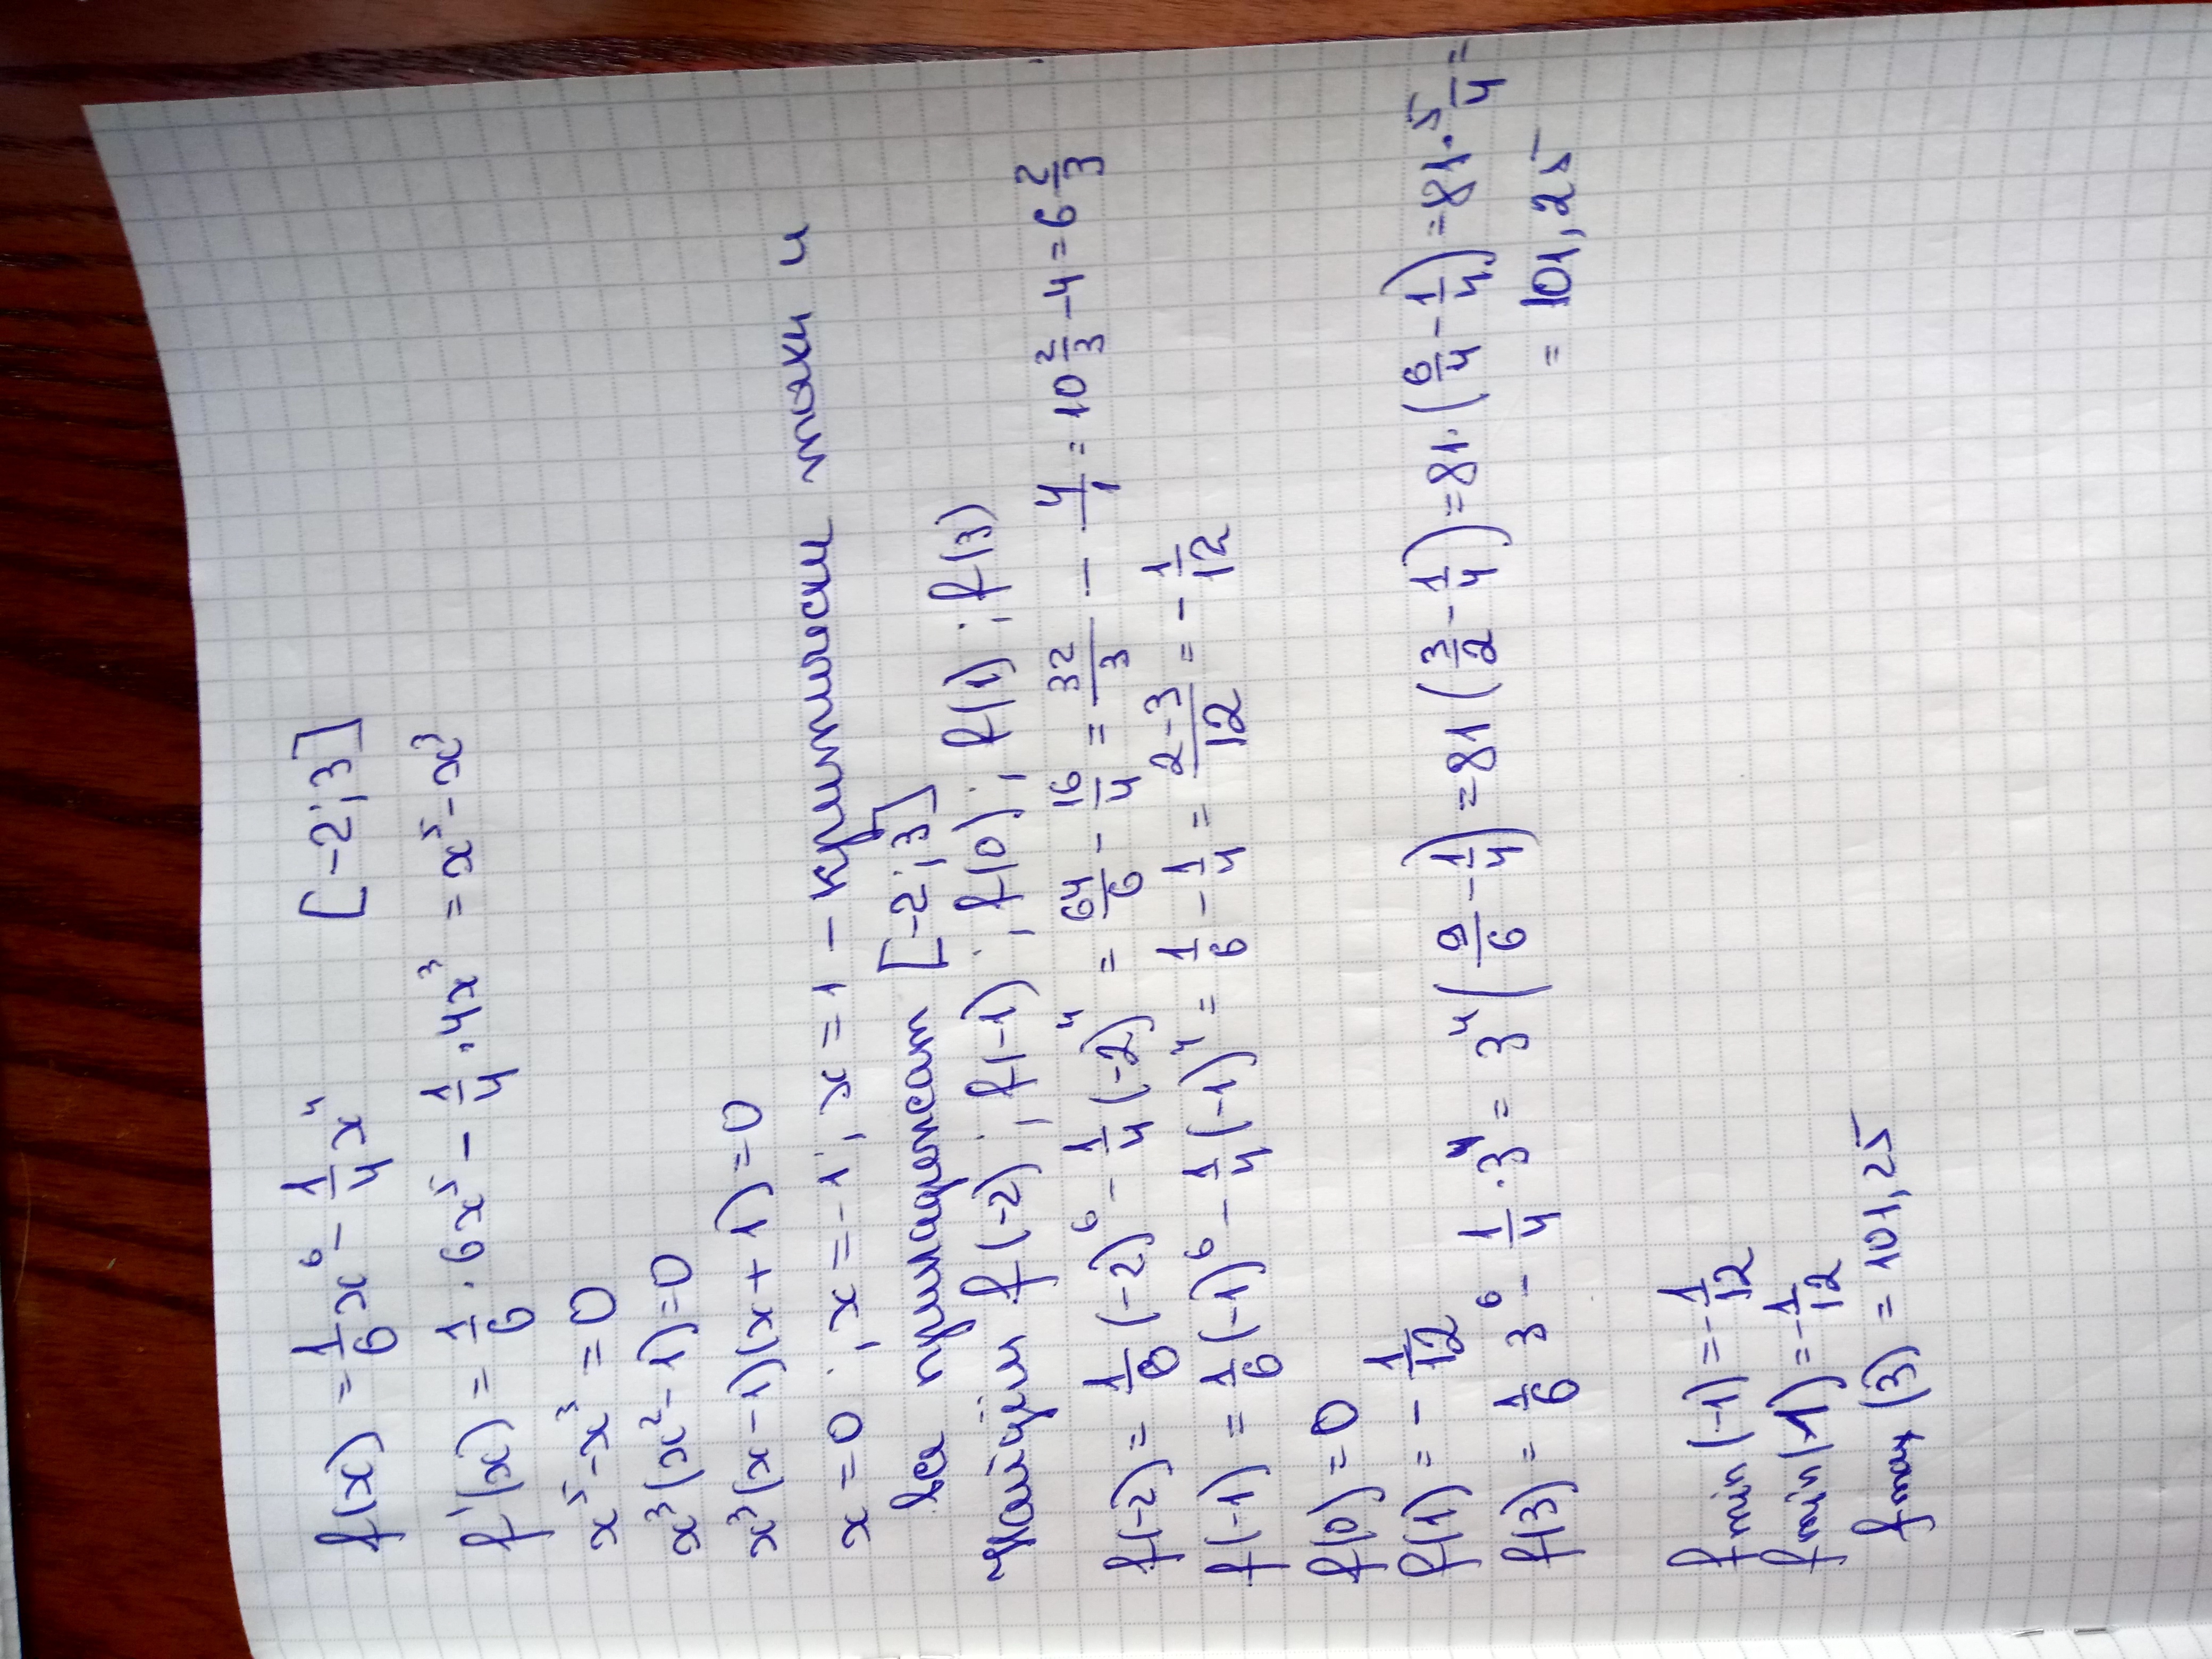 f(x) = 1/6 x⁶ - 1/4 x⁴ [-2;3]
f'(x) = 1/6 · 6x⁵ - 1/4 · 4x³ = x⁵ - x³
x⁵ - x³ = 0
x³(x² - 1) = 0
x³(x - 1)(x + 1) = 0
x = 0 ; x = -1 ; x = 1 - критические точки и
все принадлежат [-2;3]
Найдём f(-2) ; f(-1) ; f(0) ; f(1) ; f(3)
f(-2) = 1/6 (-2)⁶ - 1/4 (-2)⁴ = 64/6 - 16/4 = 32/3 - 4/1 = 10 2/3 - 4 = 6 2/3
f(-1) = 1/6 (-1)⁶ - 1/4 (-1)⁴ = 1/6 - 1/4 = 2-3/12 = - 1/12
f(0) = 0
f(1) = - 1/12
f(3) = 1/6 3⁶ - 1/4 · 3⁴ = 3⁴ (9/6 - 1/4) = 81 (3/2 - 1/4) = 81 · (6/4 - 1/4) = 81 · 5/4 =
= 101,25
f min (-1) = - 1/12
f min (1) = - 1/12
f max (3) = 101,25